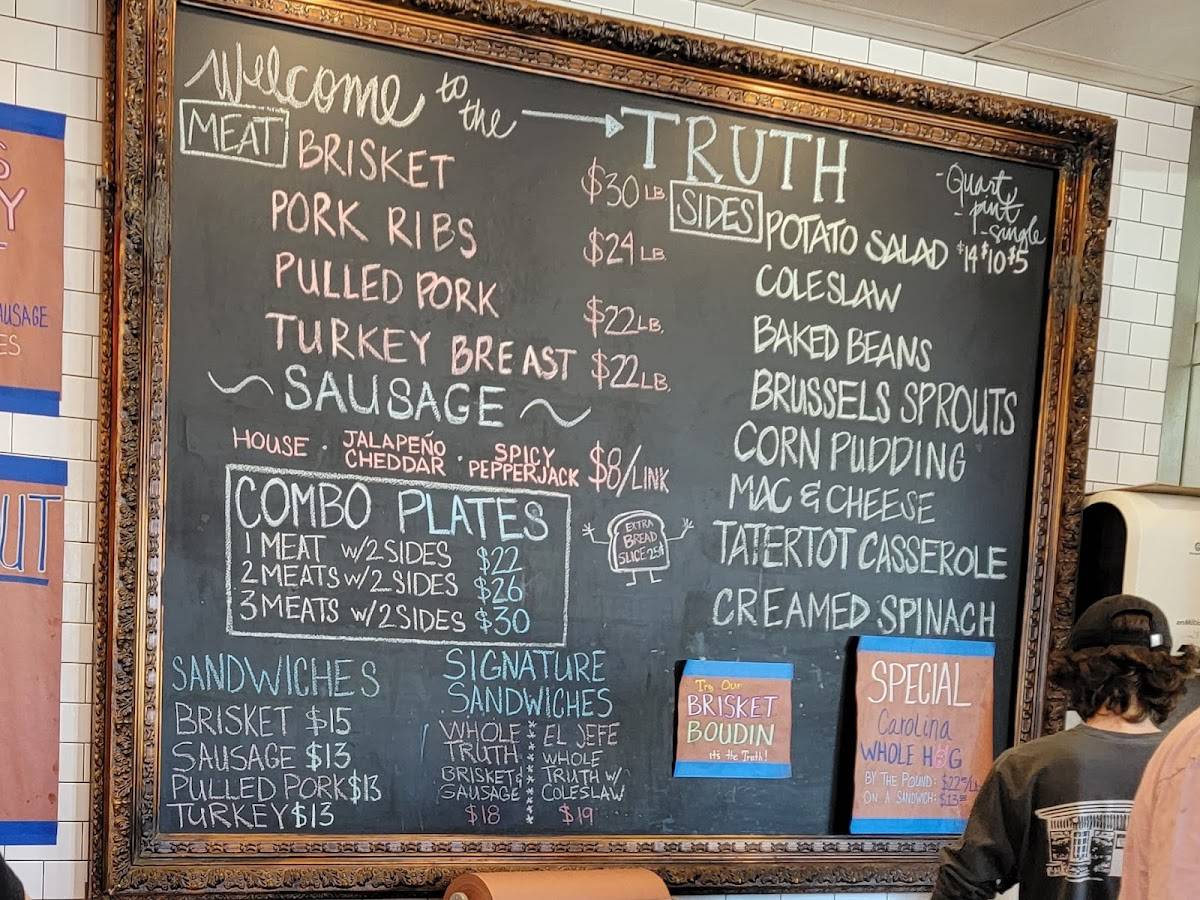 Welcome to the → TRUTH
MEAT
BRISKET $30 LB
PORK RIBS $24 LB.
PULLED PORK $22 LB.
TURKEY BREAST $22 LB.
~ SAUSAGE ~
HOUSE · JALAPEÑO CHEDDAR · SPICY PEPPERJACK $8/LINK
COMBO PLATES
1 MEAT W/2 SIDES $22
2 MEATS W/2 SIDES $26
3 MEATS W/2 SIDES $30
EXTRA
BREAD
SLICE 25¢
SANDWICHES
BRISKET $15
SAUSAGE $13
PULLED PORK $13
TURKEY $13
SIGNATURE
SANDWICHES
WHOLE
TRUTH
BRISKET &
SAUSAGE
$18
EL JEFE
WHOLE
TRUTH W/
COLESLAW
$19
SIDES
- Quart
- pint
- single
POTATO SALAD $14 $10 $5
COLESLAW
BAKED BEANS
BRUSSELS SPROUTS
CORN PUDDING
MAC & CHEESE
TATERTOT CASSEROLE
CREAMED SPINACH
Try Our
BRISKET
BOUDIN
it's the Truth!
SPECIAL
Carolina
WHOLE HOG
BY THE POUND: $22
ON A SANDWICH: $13
S
Y
AUSAGE
ES
UT